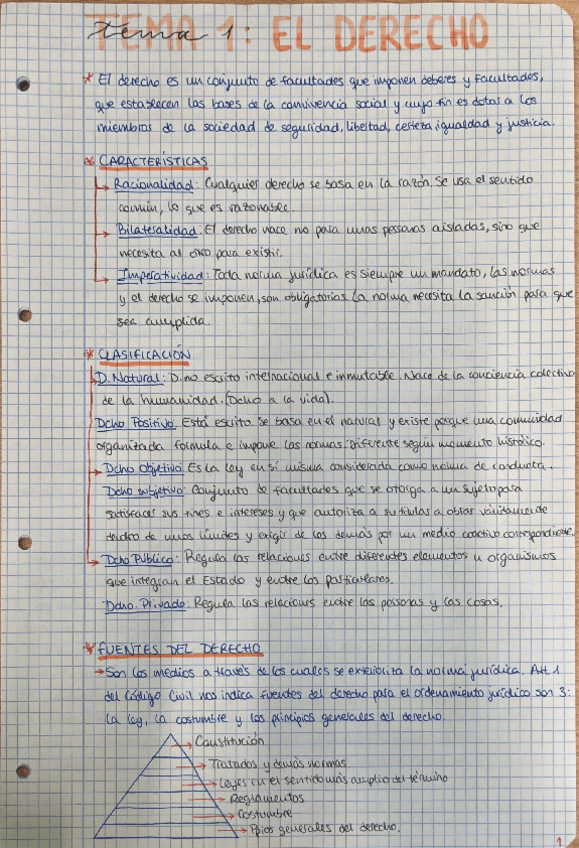 tema 1: EL DERECHO
* El derecho es un conjunto de facultades que imponen deberes y facultades,
que establecen las bases de la convivencia social y cuyo fin es dotar a los
miembros de la sociedad de seguridad, libertad, certeza, igualdad y justicia.
* CARACTERÍSTICAS
→ Racionalidad: Cualquier derecho se basa en la razón. Se usa el sentido
común, lo que es razonable.
→ Bilateralidad: El derecho nace no para unas personas aisladas, sino que
necesita al otro para existir.
→ Imperatividad: Toda norma jurídica es siempre un mandato, las normas
y el derecho se imponen, son obligatorias. La norma necesita la sanción para que
sea cumplida.
* CLASIFICACIÓN
D. Natural: D. no escrito internacional e inmutable. Nace de la conciencia colectiva
de la humanidad. (Dcho a la vida).
Dcho Positivo. Está escrito. Se basa en el natural y existe porque una comunidad
organizada formula e impone las normas. Diferente según momento histórico.
→ Dcho Objetivo: Es la ley en sí misma considerada como norma de conducta.
Dcho subjetivo: Conjunto de facultades que se otorga a un sujeto para
satisfacer sus fines e intereses y que autoriza a su titular a obrar válidamente
dentro de unos límites y exigir de los demás por un medio coactivo correspondiente.
→ Dcho Público: Regula las relaciones entre diferentes elementos u organismos
que integran el Estado y entre los particulares.
Dcho. Privado: Regula las relaciones entre las personas y las cosas.
* FUENTES DEL DERECHO
→ Son los medios a través de los cuales se exterioriza la norma jurídica. Art. 1
del Código Civil nos indica fuentes del derecho para el ordenamiento jurídico son 3:
la ley, la costumbre y los principios generales del derecho.
→ Constitución
→ Tratados y demás normas
→ Leyes en el sentido más amplio del término
→ Reglamentos
→ Costumbre
→ Ppios generales del derecho.
1